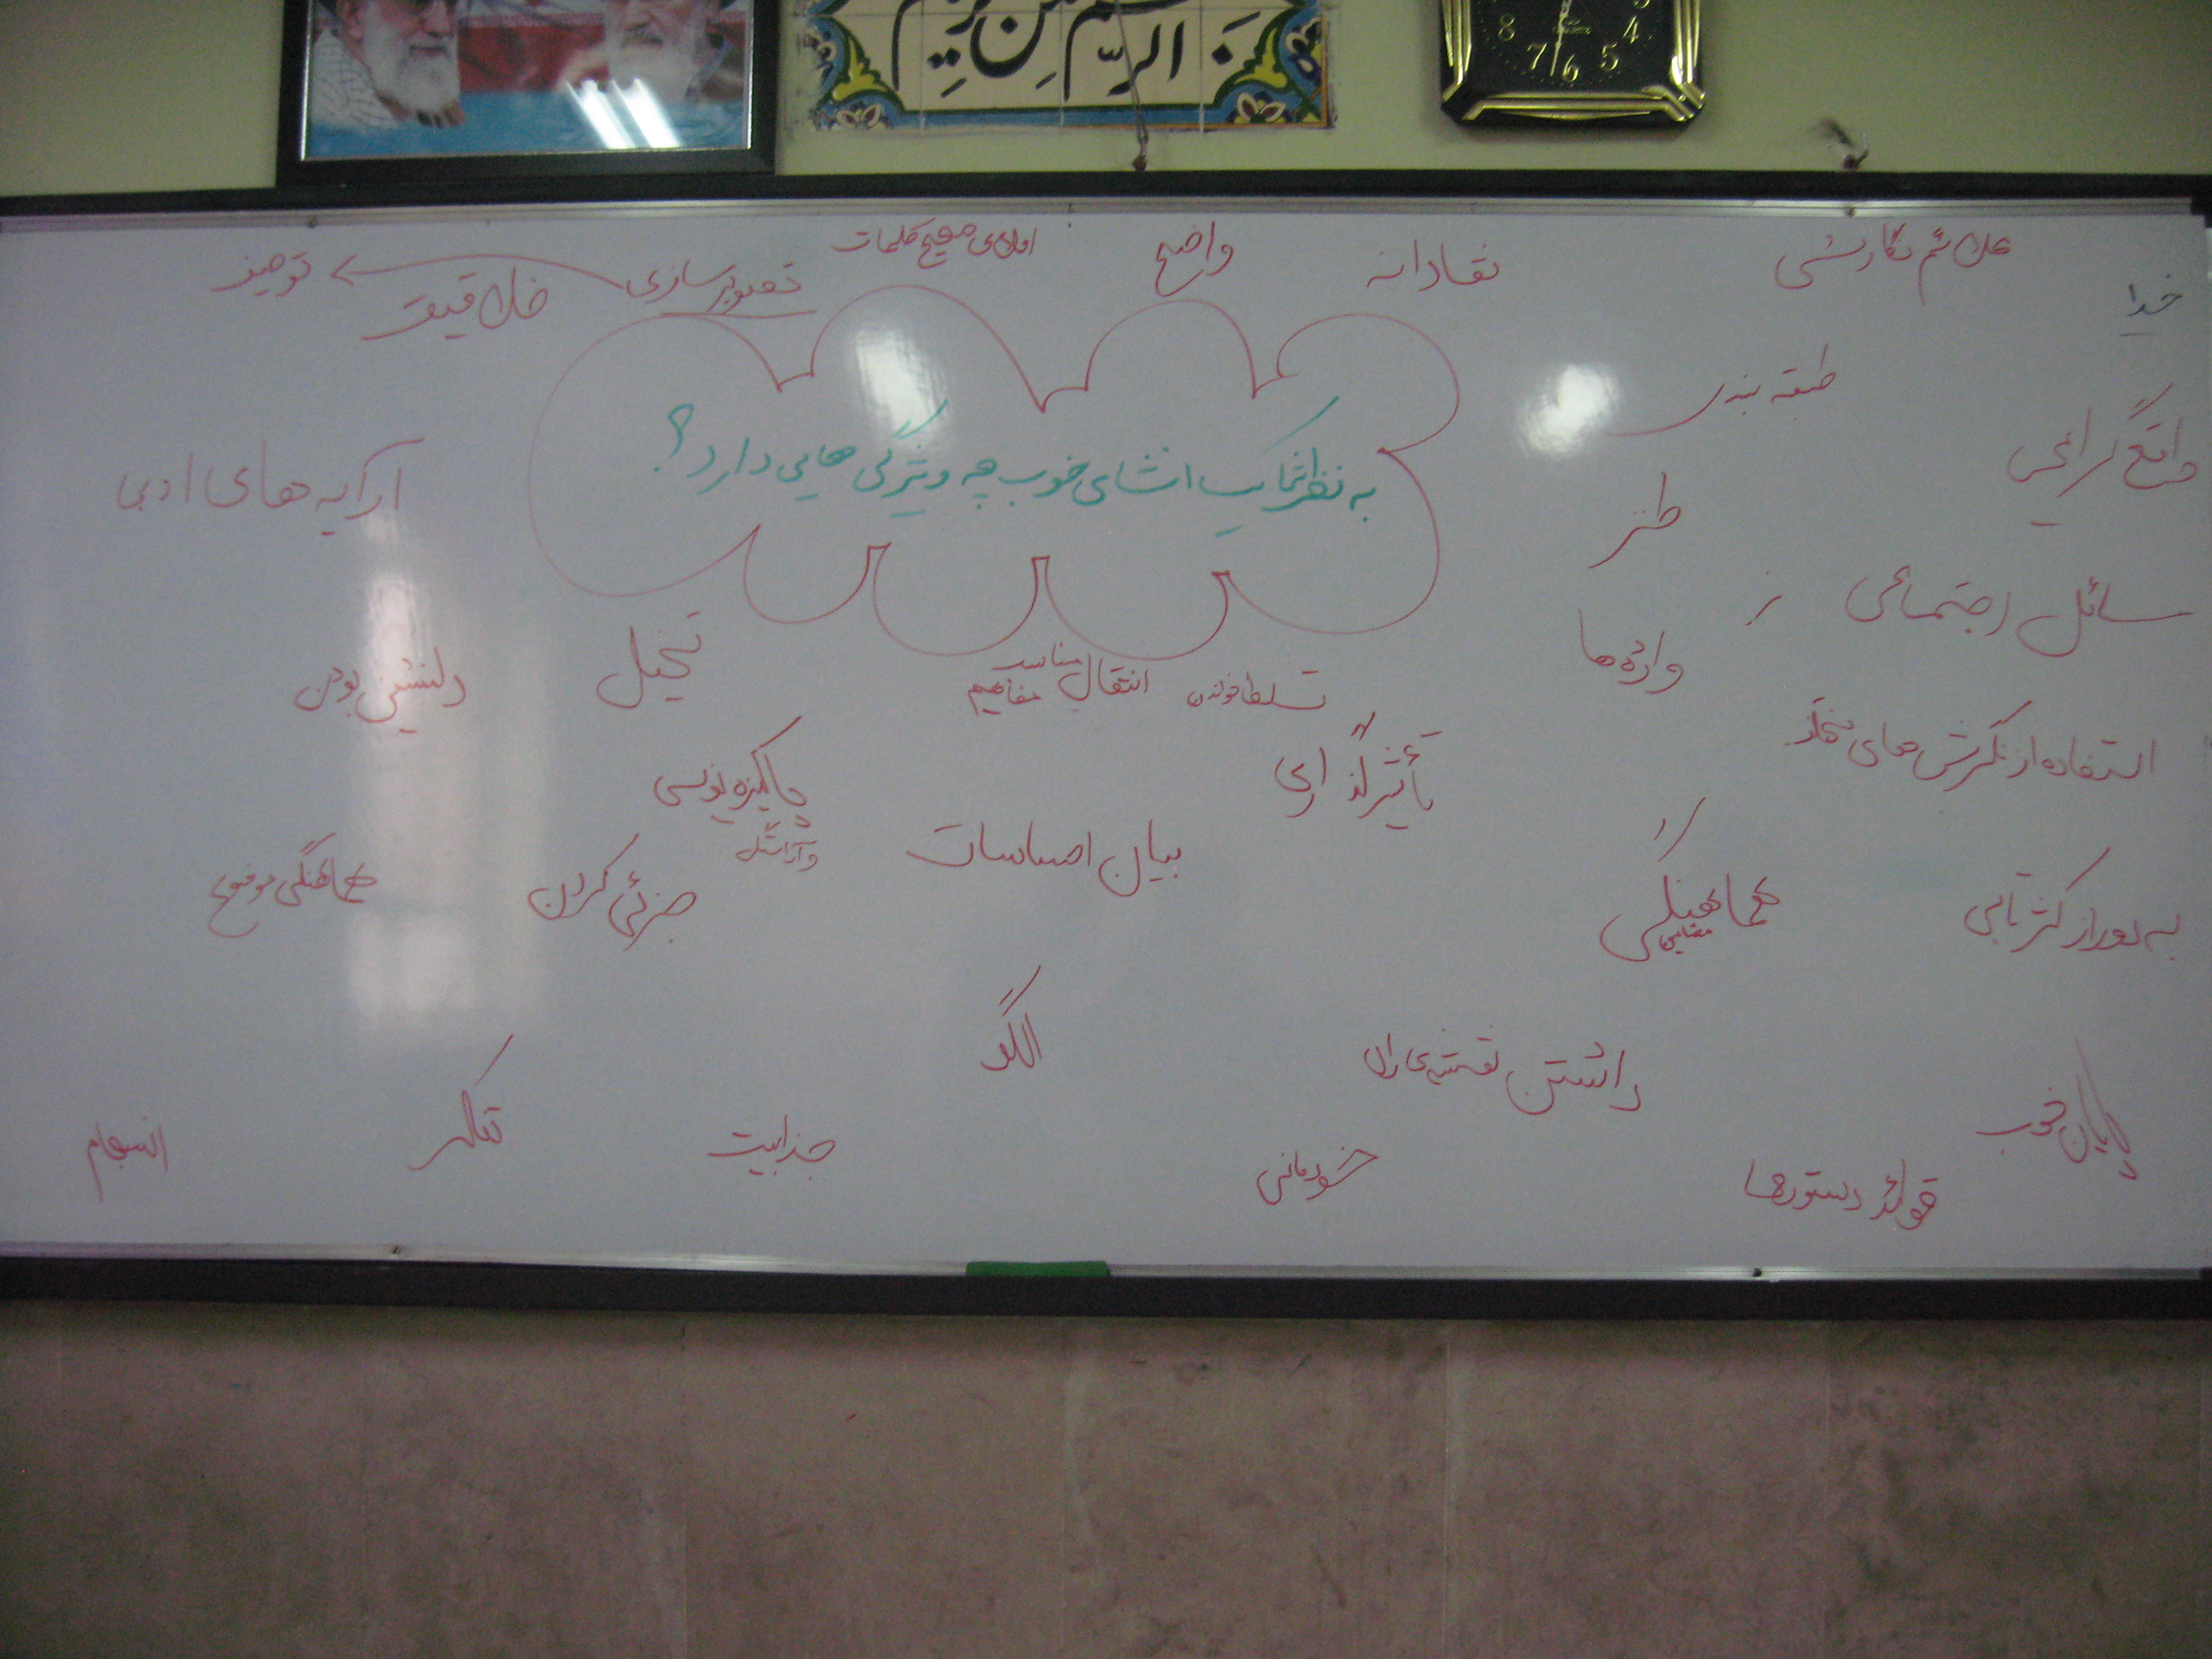 8 7 6 5 4
خدا
علائم نگارشی
نقادانه
واضح
املای صحیح کلمات
تصویرسازی
توصیف
خلاقیت
طبقه بندی
واقع گرایی
به نظر شما یک انشای خوب چه ویژگی هایی دارد؟
آرایه های ادبی
طنز
مسائل اجتماعی
واژه ها
تسلط خواندن
انتقال مناسب
مفاهیم
تخیل
دلنشین بودن
استفاده از نگرش های
تأثیرگذاری
پاکیزه نویسی
و آراستگی
بیان احساسات
جزئی کردن
هماهنگی موضوع
هماهنگی
مضامین
به دور از کژتابی
الگو
داشتن نقشه ی راه
پایان خوب
قوائد دستورها
خودمانی
جذابیت
تفکر
انسجام